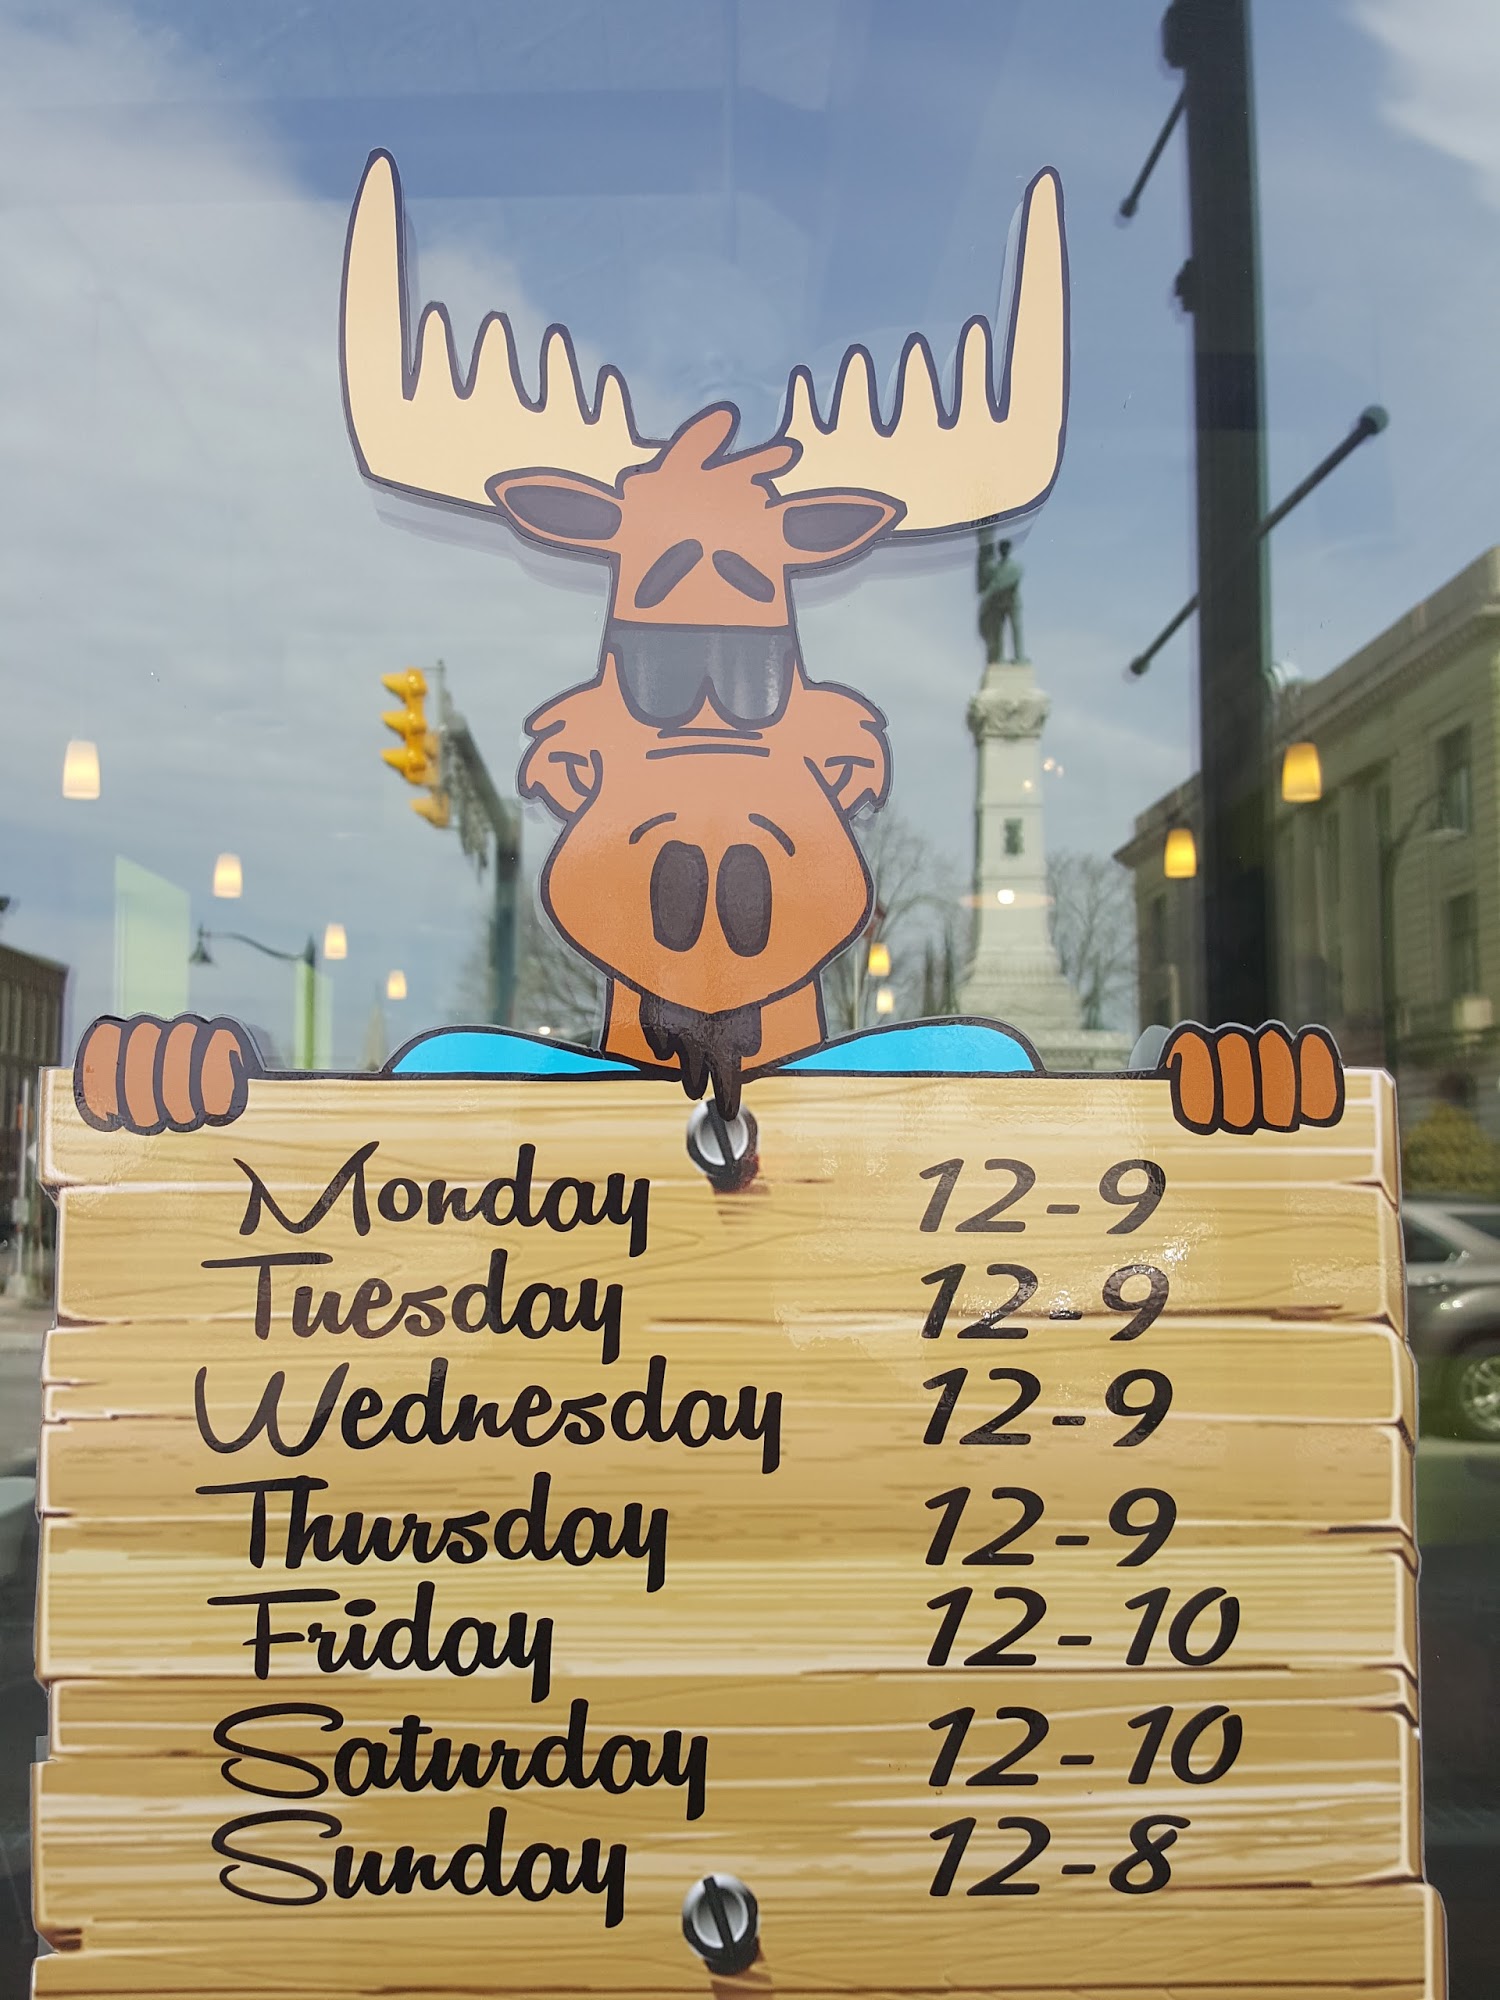 Monday 12-9
Tuesday 12-9
Wednesday 12-9
Thursday 12-9
Friday 12-10
Saturday 12-10
Sunday 12-8